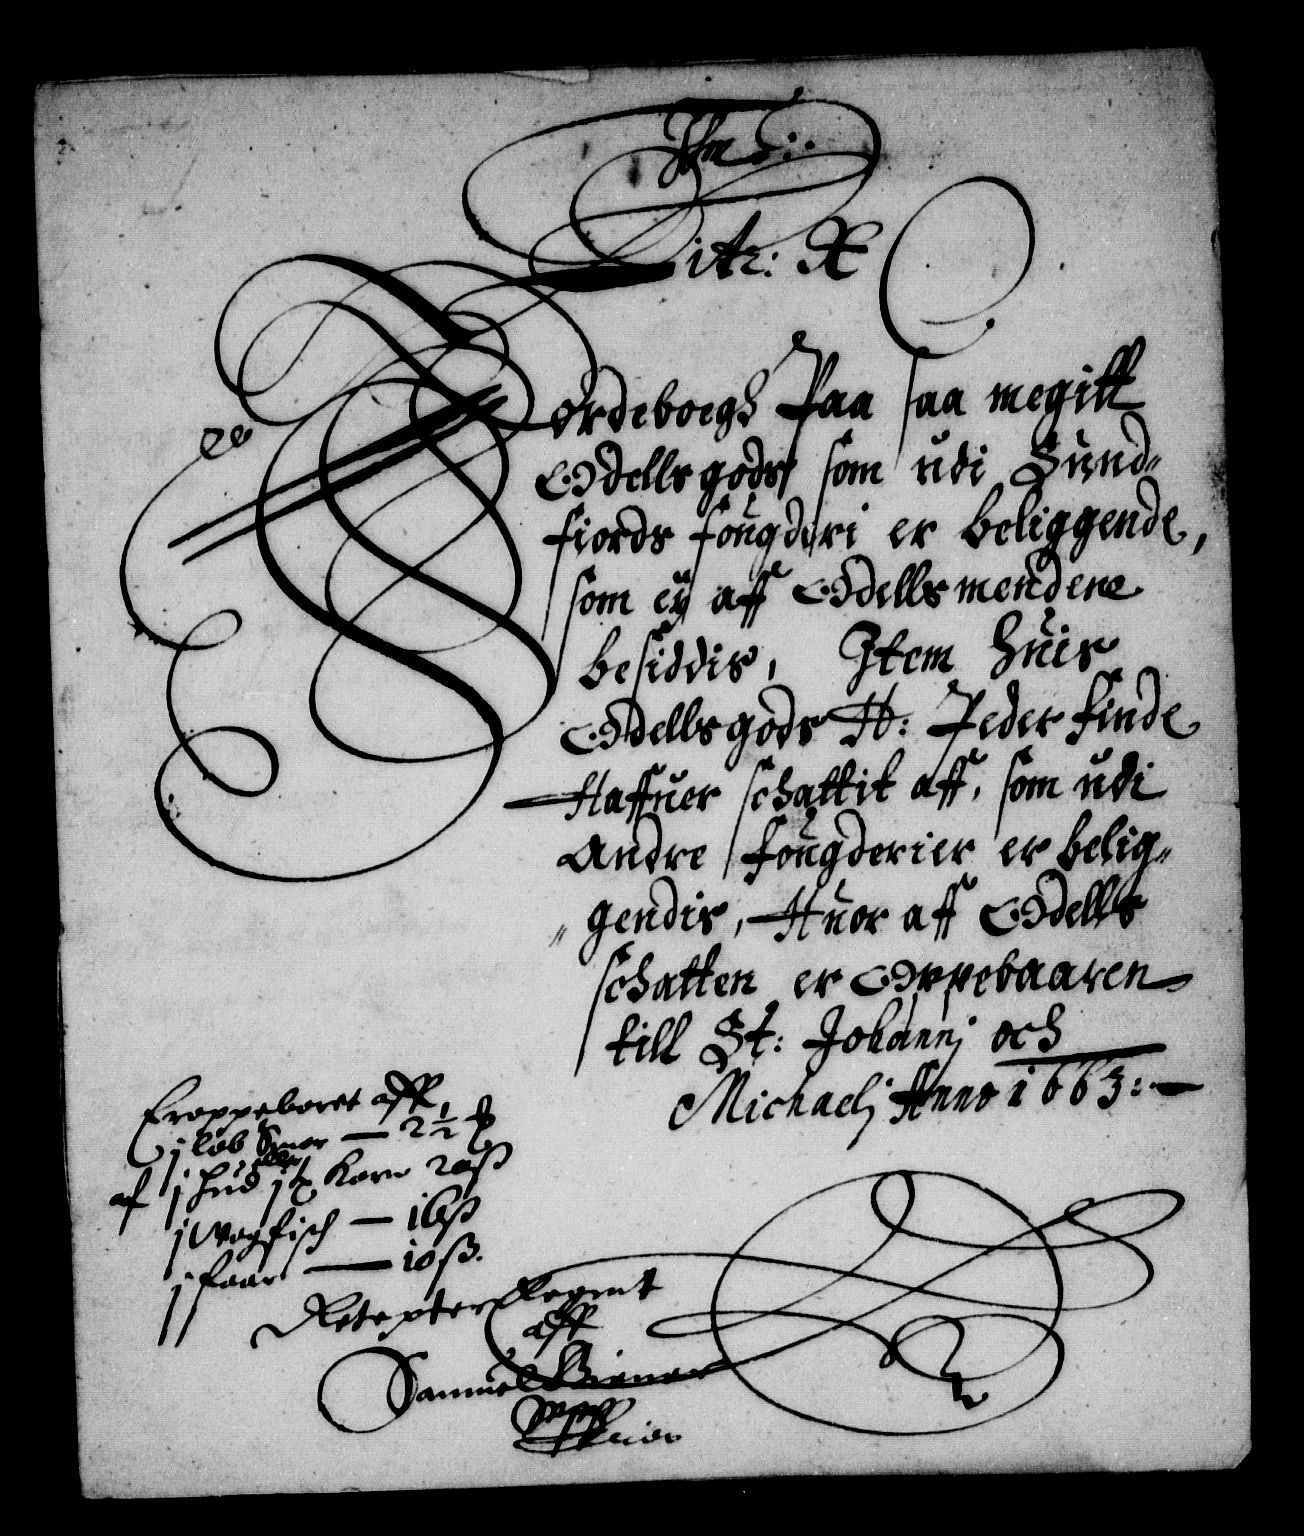 Litr: X
Jordeboegh Paa saa megitt
Odells godts som udi Sund-
fiords fougderi er beliggende,
som ey aff Odells mendene
besiddis, Item huis
Odells gods H: Peder finde
Haffuer schattit aff, som udi
Andre fougderier er belig-
gendis, Huor aff Odells
schatten er Oppebaaren
till St: Johannj och
Michaelj Anno 1663:
Er oppeboret aff,
j løb Smør — 2½
af j hud eller j t Korn 20 ß
j wog fisch — 16 ß
j faar — 10 ß.
aff
Samuel